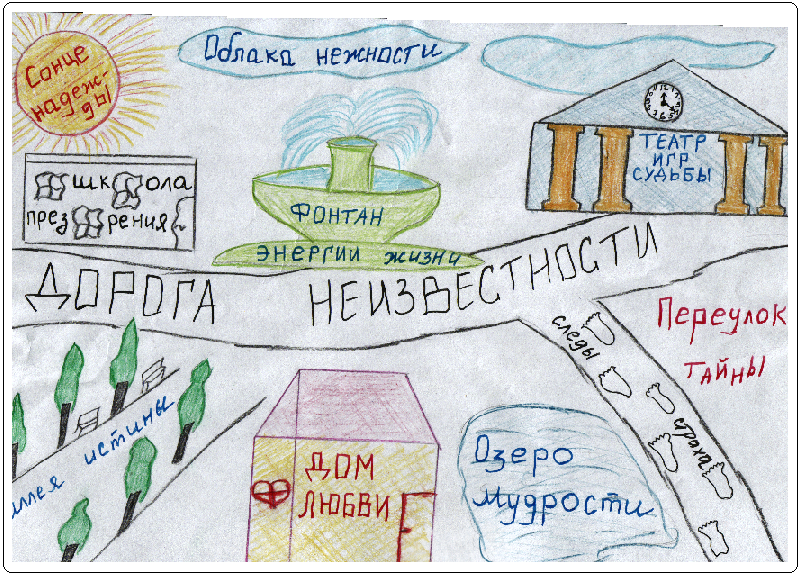 Сонце
надеж-
ды
Облака нежности
ТЕАТР
ИГР
СУДЬБЫ
школа
презрения
ФОНТАН
ЭНЕРГИИ жизни
ДОРОГА НЕИЗВЕСТНОСТИ
Переулок
тайны
следы
страха
ллея истины
ДОМ
ЛЮБВИ
Озеро
мудрости